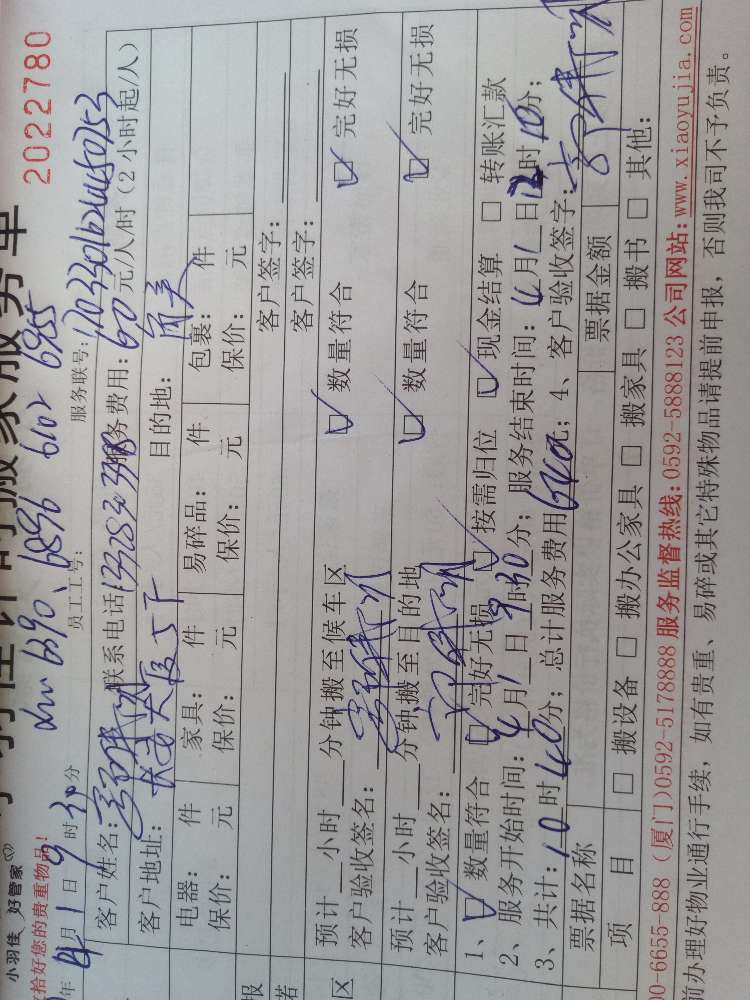 小羽佳 好管家
务单
2022780
拾好您的贵重物品!
6390、6896 6102 6955
年 4 月 1 日 9 时 30 分 员工工号: 服务联号:
客户姓名: 联系电话 服务费用: 60 元/人/时 (2 小时起/人)
客户地址: 目的地:
电器: 件 家具: 件 易碎品: 件 包裹: 件
保价: 元 保价: 元 保价: 元 保价: 元
报 客户签字:
若 客户签字:
预计 小时 分钟搬至候车区 数量符合 完好无损
区 客户验收签名:
预计 小时 分钟搬至目的地 数量符合 完好无损
客户验收签名:
1、 数量符合 完好无损 按需归位 现金结算 □ 转账汇款
2、服务开始时间: 4 月 1 日 9 时 30 分; 服务结束时间: 4 月 1 日 时 10 分;
3、共计: 10 时 40 分; 总计服务费用 640 元; 4、客户验收签字:
票据名称 票据金额
项 目 □ 搬设备 □ 搬办公家具 □ 搬家具 □ 搬书 □ 其他:
0-6655-888 (厦门)0592-5178888 服务监督热线: 0592-5888123 公司网站: www.xiaoyujia.com
前办理好物业通行手续, 如有贵重、易碎或其它特殊物品请提前申报, 否则我司不予负责。